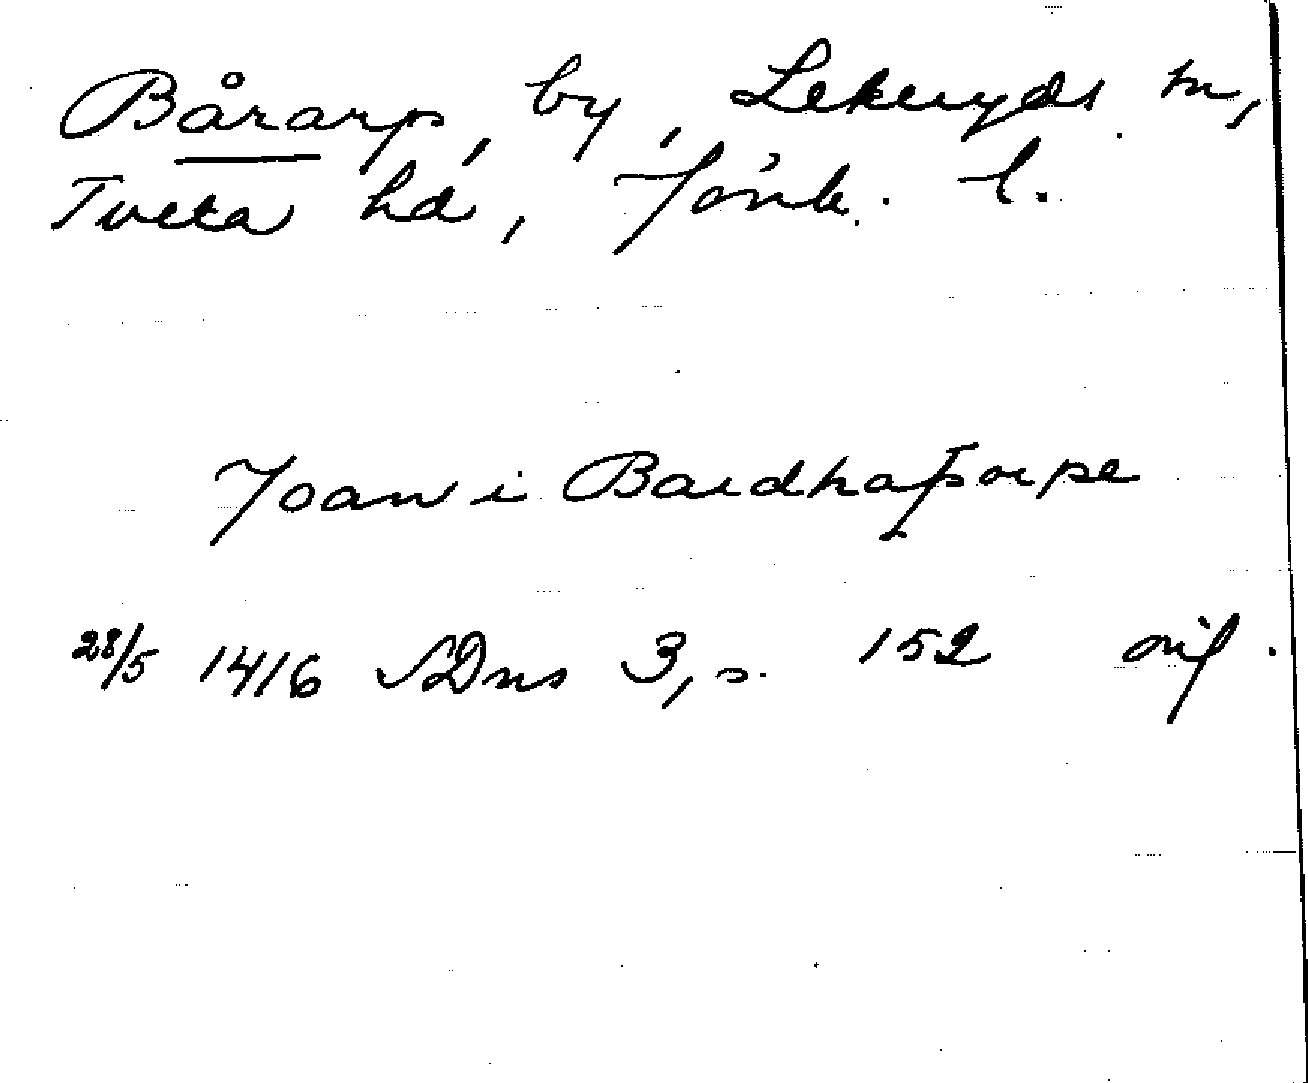 Bårarp, by, Lekeryds sn,
Tveta hd, Jönk. l.
Joan i Bardhaþorpe
28/5 1416 SDns 3, s. 152 orig.